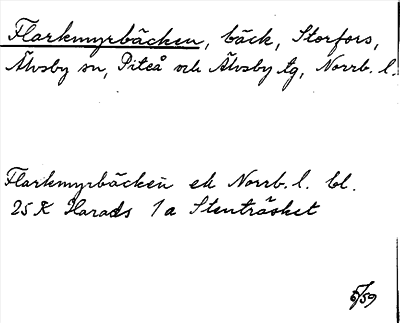 Flarkmyrbäcken, bäck, Storfors,
Älvsby sn, Piteå och Älvsby tg, Norrb. l.
Flarkmyrbäcken ek Norrb. l. bl.
25 K Harads 1 a Stenträsket
5/59